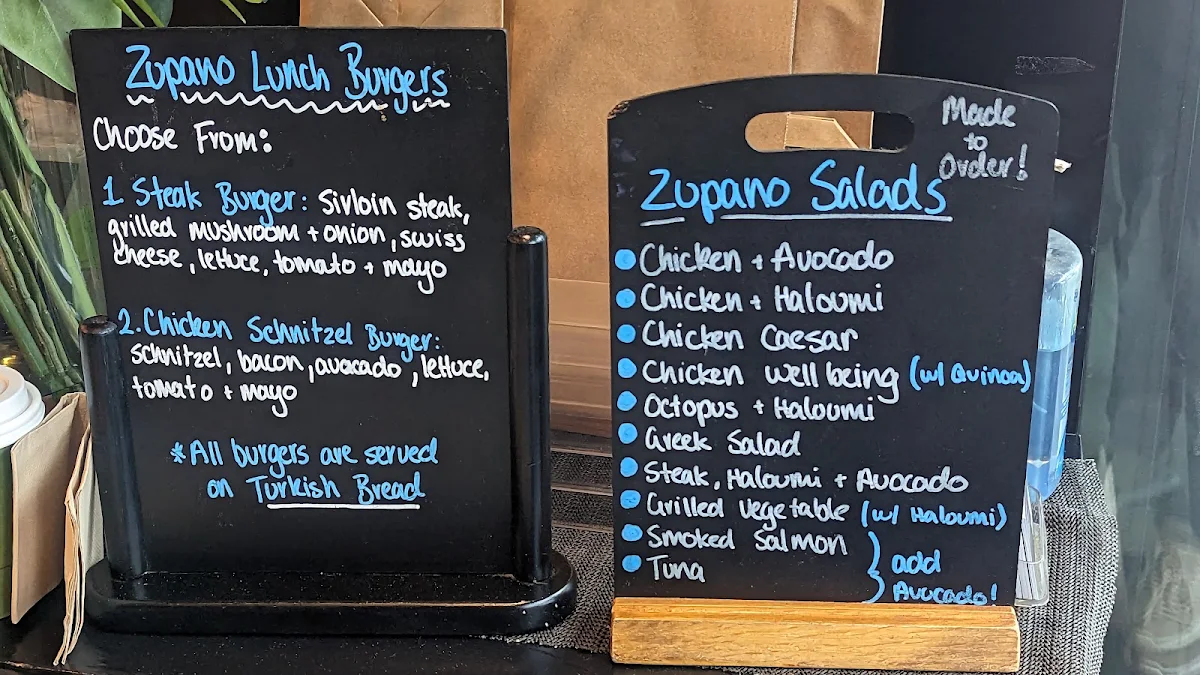 Zupano Lunch Burgers
Choose From:
1. Steak Burger: Sirloin steak,
grilled mushroom + onion, swiss
cheese, lettuce, tomato + mayo
2. Chicken Schnitzel Burger:
schnitzel, bacon, avocado, lettuce,
tomato + mayo
*All burgers are served
on Turkish Bread
Made
to
Order!
Zupano Salads
Chicken + Avocado
Chicken + Haloumi
Chicken Caesar
Chicken well being (w/ Quinoa)
Octopus + Haloumi
Greek Salad
Steak, Haloumi + Avocado
Grilled Vegetable (w/ Haloumi)
Smoked Salmon
Tuna
} add
Avocado!